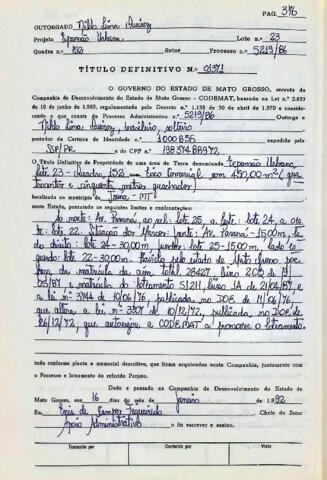 PAG. 376
OUTORGADO Nildo Lima Queiroz
Projeto Expansão Urbana Lote n.o 23
Quadra n.o 152 Setor Processo n.o 5219/86
TÍTULO DEFINITIVO N.o 01371
O GOVERNO DO ESTADO DE MATO GROSSO, através da
Companhia de Desenvolvimento do Estado de Mato Grosso - CODEMAT, baseado na Lei n.o 2.933
de 10 de junho de 1.969, regulamentado pelo Decreto n.o 1.138 de 30 de abril de 1.970 e considerando
o que consta do Processo Administrativo n.o 5219/86 Outorga a
Nildo Lima Queiroz, brasileiro, solteiro
portador da Carteira de Identidade n.o 1000855 expedida pela
SSP/PR e do CPF n.o 19857488972
O Título Definitivo de Propriedade de uma área de Terra denominada Expansão Urbana,
lote 23 - Quadra, 152 com 450,00 m² (qua
trocentos e cinquenta metros quadrados)
localizada no município de Juína - MT
neste Estado, possuindo os seguintes limites e confrontações:
Ao norte: Av. Paraná, ao sul: lote 25, a leste: lote 24, a oes
te: lote 22. Situação dos Marcos: frente: Av. Paraná - 15,00m, la
do direito: lote 24 - 30,00m, fundos: lote 25 - 15,00m, lado es
querdo: lote 22 - 30,00m. Havido pelo Estado de Mato Grosso por
a lei nº 3744 de 10/06/76, publicada no DOE de 11/06/76,
que altera a lei nº 3307 de 18/12/72, publicada no DOE de
26/12/72, que autorizou a CODEMAT a promover o loteamento.
tudo conforme planta e memorial descritivo, que ficam arquivados nesta Companhia, juntamente com
o Processo e loteamento do referido Projeto.
Dado e passado na Companhia de Desenvolvimento do Estado de
Mato Grosso, aos 16 dias do mês de janeiro de 1.992
Eu, de Campos Figueiredo Chefe do Setor
Apoio Administrativo o fiz escrever e assino.
Transcrito por Conferido por Visto